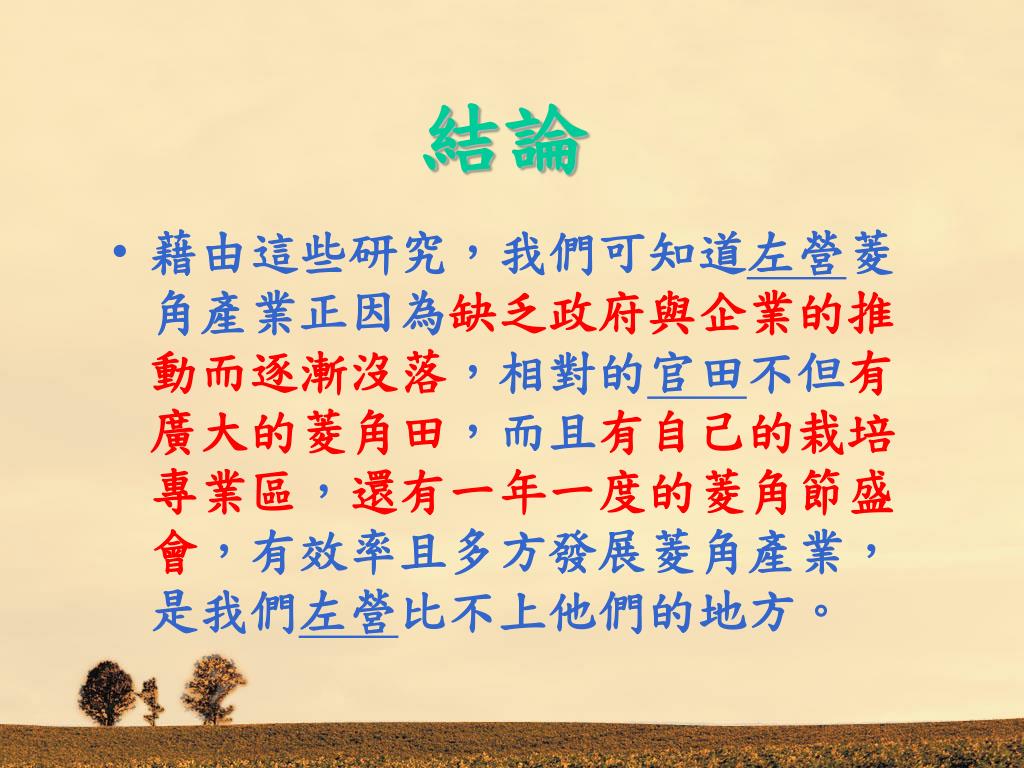 結論
• 藉由這些研究，我們可知道左營菱
角產業正因為缺乏政府與企業的推
動而逐漸沒落，相對的官田不但有
廣大的菱角田，而且有自己的栽培
專業區，還有一年一度的菱角節盛
會，有效率且多方發展菱角產業，
是我們左營比不上他們的地方。